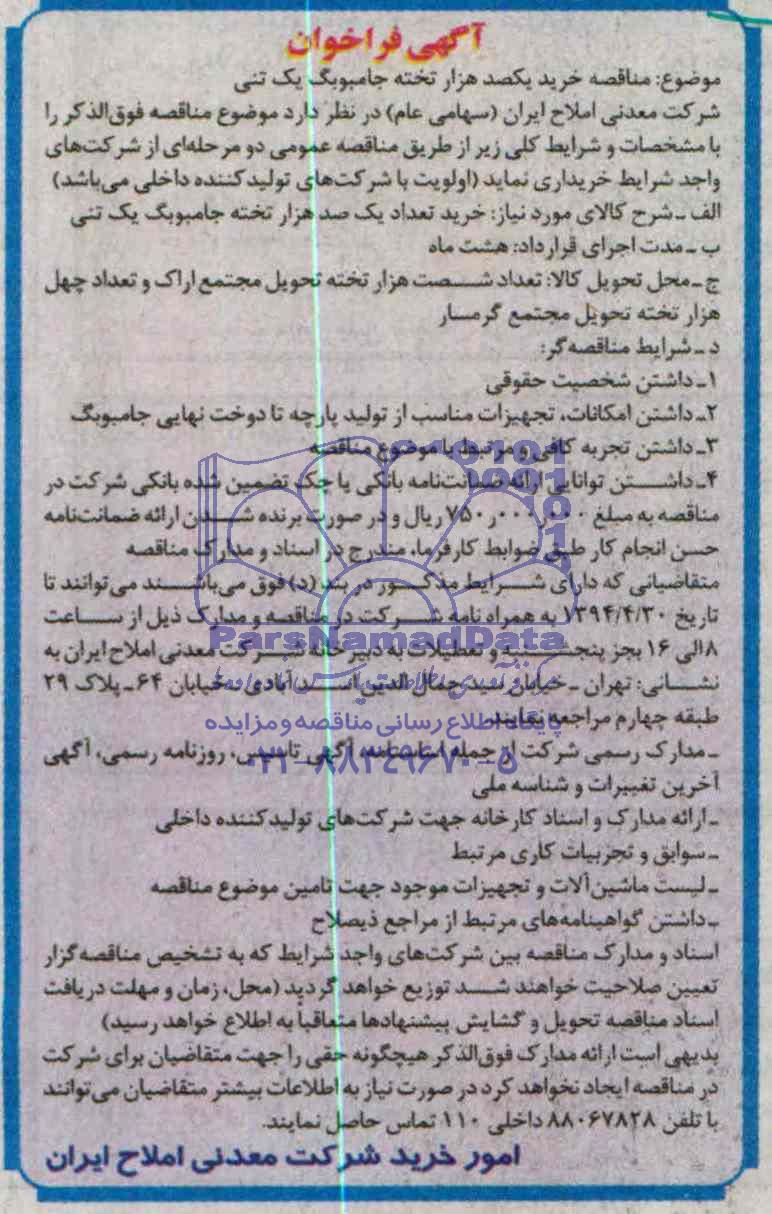 آگهی فراخوان
موضوع: مناقصه خرید یکصد هزار تخته جامبوبگ یک تنی
شرکت معدنی املاح ایران (سهامی عام) در نظر دارد موضوع مناقصه فوق‌الذکر را
با مشخصات و شرایط کلی زیر از طریق مناقصه عمومی دو مرحله‌ای از شرکت‌های
واجد شرایط خریداری نماید (اولویت با شرکت‌های تولیدکننده داخلی می‌باشد)
الف ـ شرح کالای مورد نیاز: خرید تعداد یک صد هزار تخته جامبوبگ یک تنی
ب ـ مدت اجرای قرارداد: هشت ماه
ج ـ محل تحویل کالا: تعداد شصت هزار تخته تحویل مجتمع اراک و تعداد چهل
هزار تخته تحویل مجتمع گرمسار
د ـ شرایط مناقصه‌گر:
۱ـ داشتن شخصیت حقوقی
۲ـ داشتن امکانات، تجهیزات مناسب از تولید پارچه تا دوخت نهایی جامبوبگ
۳ـ داشتن تجربه کافی و مرتبط با موضوع مناقصه
۴ـ داشتن توانایی ارائه ضمانت‌نامه بانکی یا چک تضمین شده بانکی شرکت در
مناقصه به مبلغ ۷۵۰٫۰۰۰٫۰۰۰ ریال و در صورت برنده شدن ارائه ضمانت‌نامه
حسن انجام کار طبق ضوابط کارفرما، مندرج در اسناد و مدارک مناقصه
متقاضیانی که دارای شرایط مذکور در بند (د) فوق می‌باشند می‌توانند تا
تاریخ ۱۳۹۴/۴/۳۰ به همراه نامه شرکت در مناقصه و مدارک ذیل از ساعت
۸ الی ۱۶ بجز پنجشنبه و تعطیلات به دبیرخانه شرکت معدنی املاح ایران به
نشانی: تهران ـ خیابان سید جمال الدین اسدآبادی ـ خیابان ۶۴ ـ پلاک ۲۹
طبقه چهارم مراجعه نمایند.
ـ مدارک رسمی شرکت از جمله اساسنامه، آگهی تاسیس، روزنامه رسمی، آگهی
آخرین تغییرات و شناسه ملی
ـ ارائه مدارک و اسناد کارخانه جهت شرکت‌های تولیدکننده داخلی
ـ سوابق و تجربیات کاری مرتبط
ـ لیست ماشین‌آلات و تجهیزات موجود جهت تامین موضوع مناقصه
ـ داشتن گواهینامه‌های مرتبط از مراجع ذیصلاح
اسناد و مدارک مناقصه بین شرکت‌های واجد شرایط که به تشخیص مناقصه‌گزار
تعیین صلاحیت خواهند شد توزیع خواهد گردید (محل، زمان و مهلت دریافت
اسناد مناقصه تحویل و گشایش پیشنهادها متعاقباً به اطلاع خواهد رسید)
بدیهی است ارائه مدارک فوق‌الذکر هیچگونه حقی را جهت متقاضیان برای شرکت
در مناقصه ایجاد نخواهد کرد در صورت نیاز به اطلاعات بیشتر متقاضیان می‌توانند
با تلفن ۸۸۰۶۷۸۲۸ داخلی ۱۱۰ تماس حاصل نمایند.
امور خرید شرکت معدنی املاح ایران
ParsNamadData
پایگاه اطلاع رسانی مناقصه و مزایده
۰۲۱-۸۸۳۴۹۶۷۰-۵